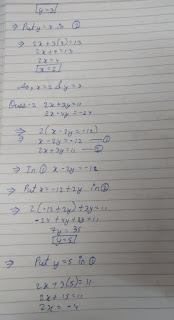 [y=3]
⇒ Put y = 3 in ②
⇒ 2x+3(3)=13
2x+9=13
2x=4
[x=2]
As, x=2 & y=3
Ques-2 2x+3y=11
2x-4y=-24
⇒ 2(x-2y=-12)
⇒ x-2y=-12 —①
2x+3y=11 —②
⇒ In ① x-2y=-12
⇒ Put x=-12+2y in ②
⇒ 2(-12+2y)+3y=11
-24+4y+3y=11
7y=35
[y=5]
⇒ Put y=5 in ②
2x+3(5)=11
2x+15=11
2x=-4